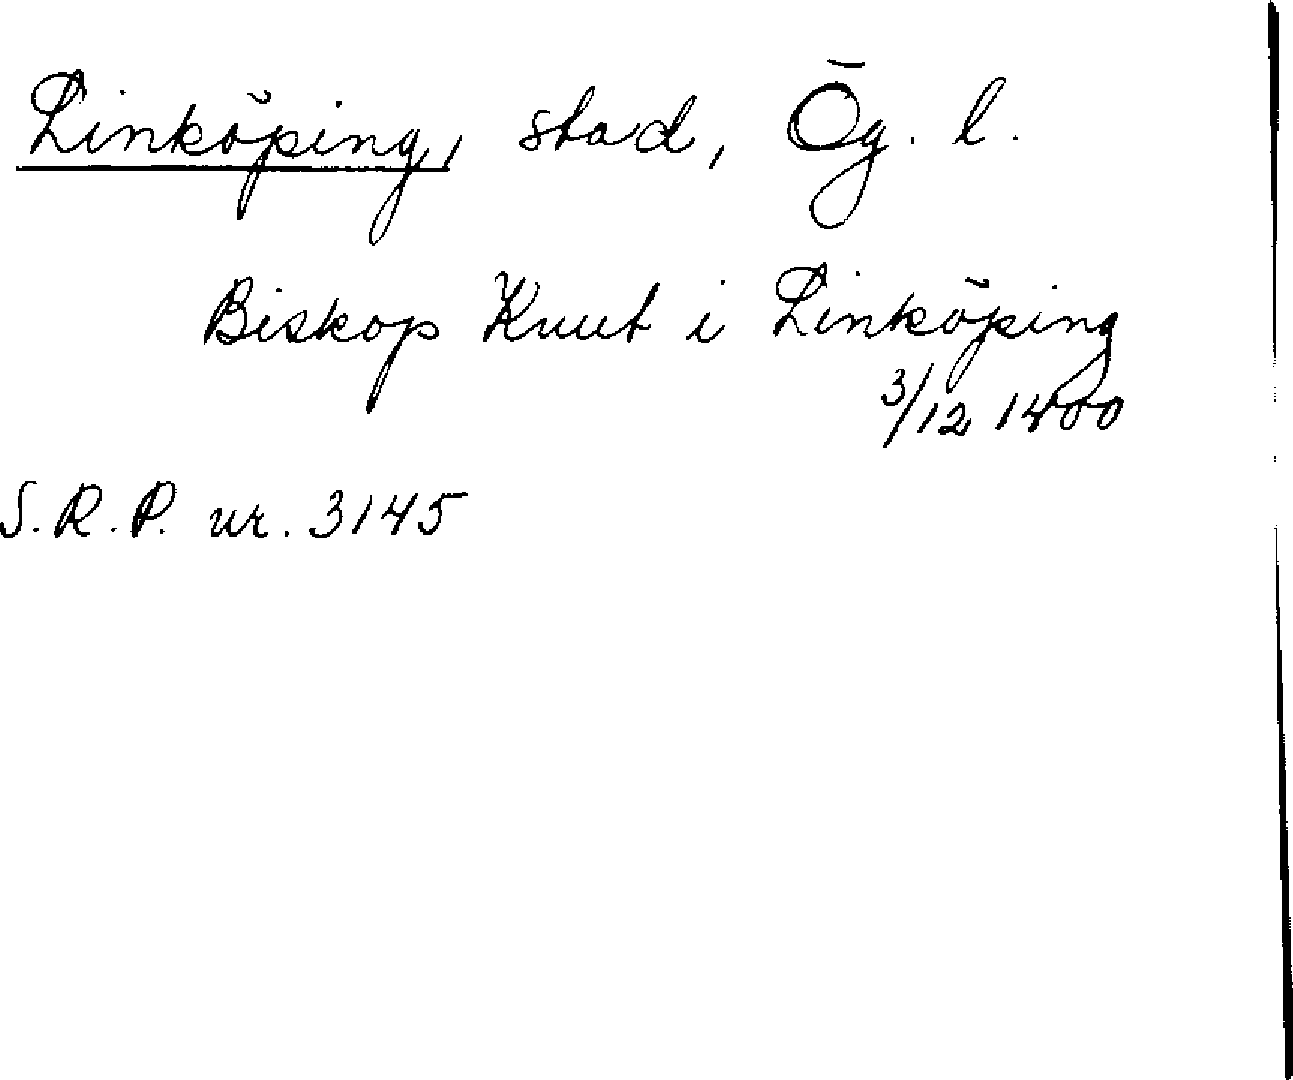 Linköping, stad, Ög. l.
Biskop Knut i Linköping
3/12 1400
S.R.P. nr. 3145